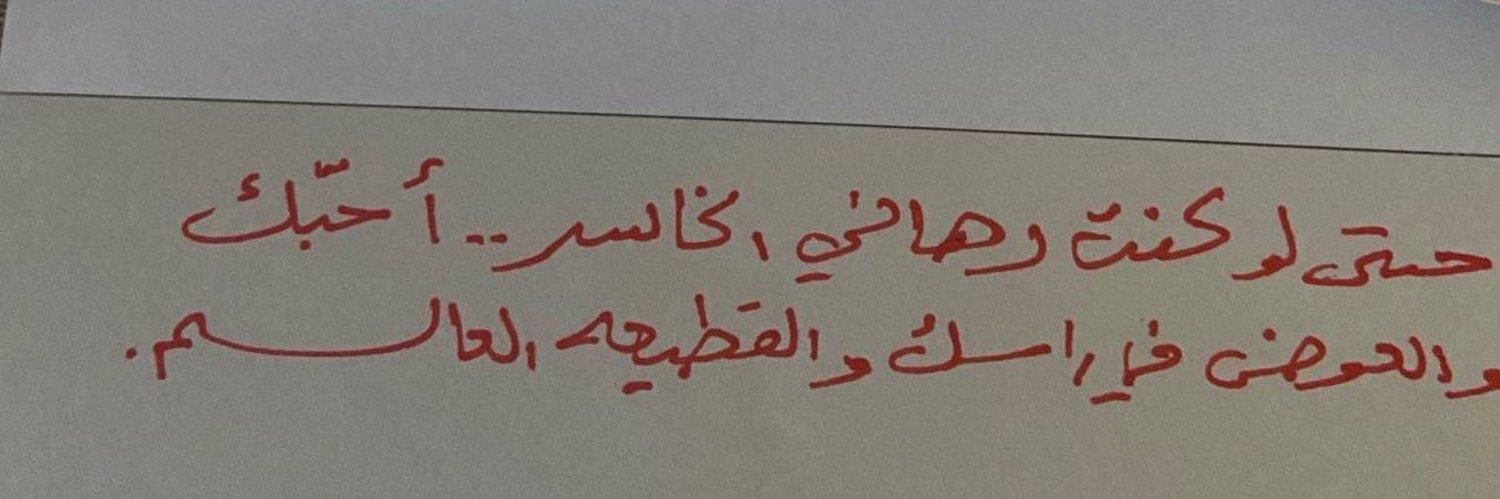 حتى لو كنت رهاني الخاسر.. أحبّك
والعوض في راسك والقطيعه العالـــم.